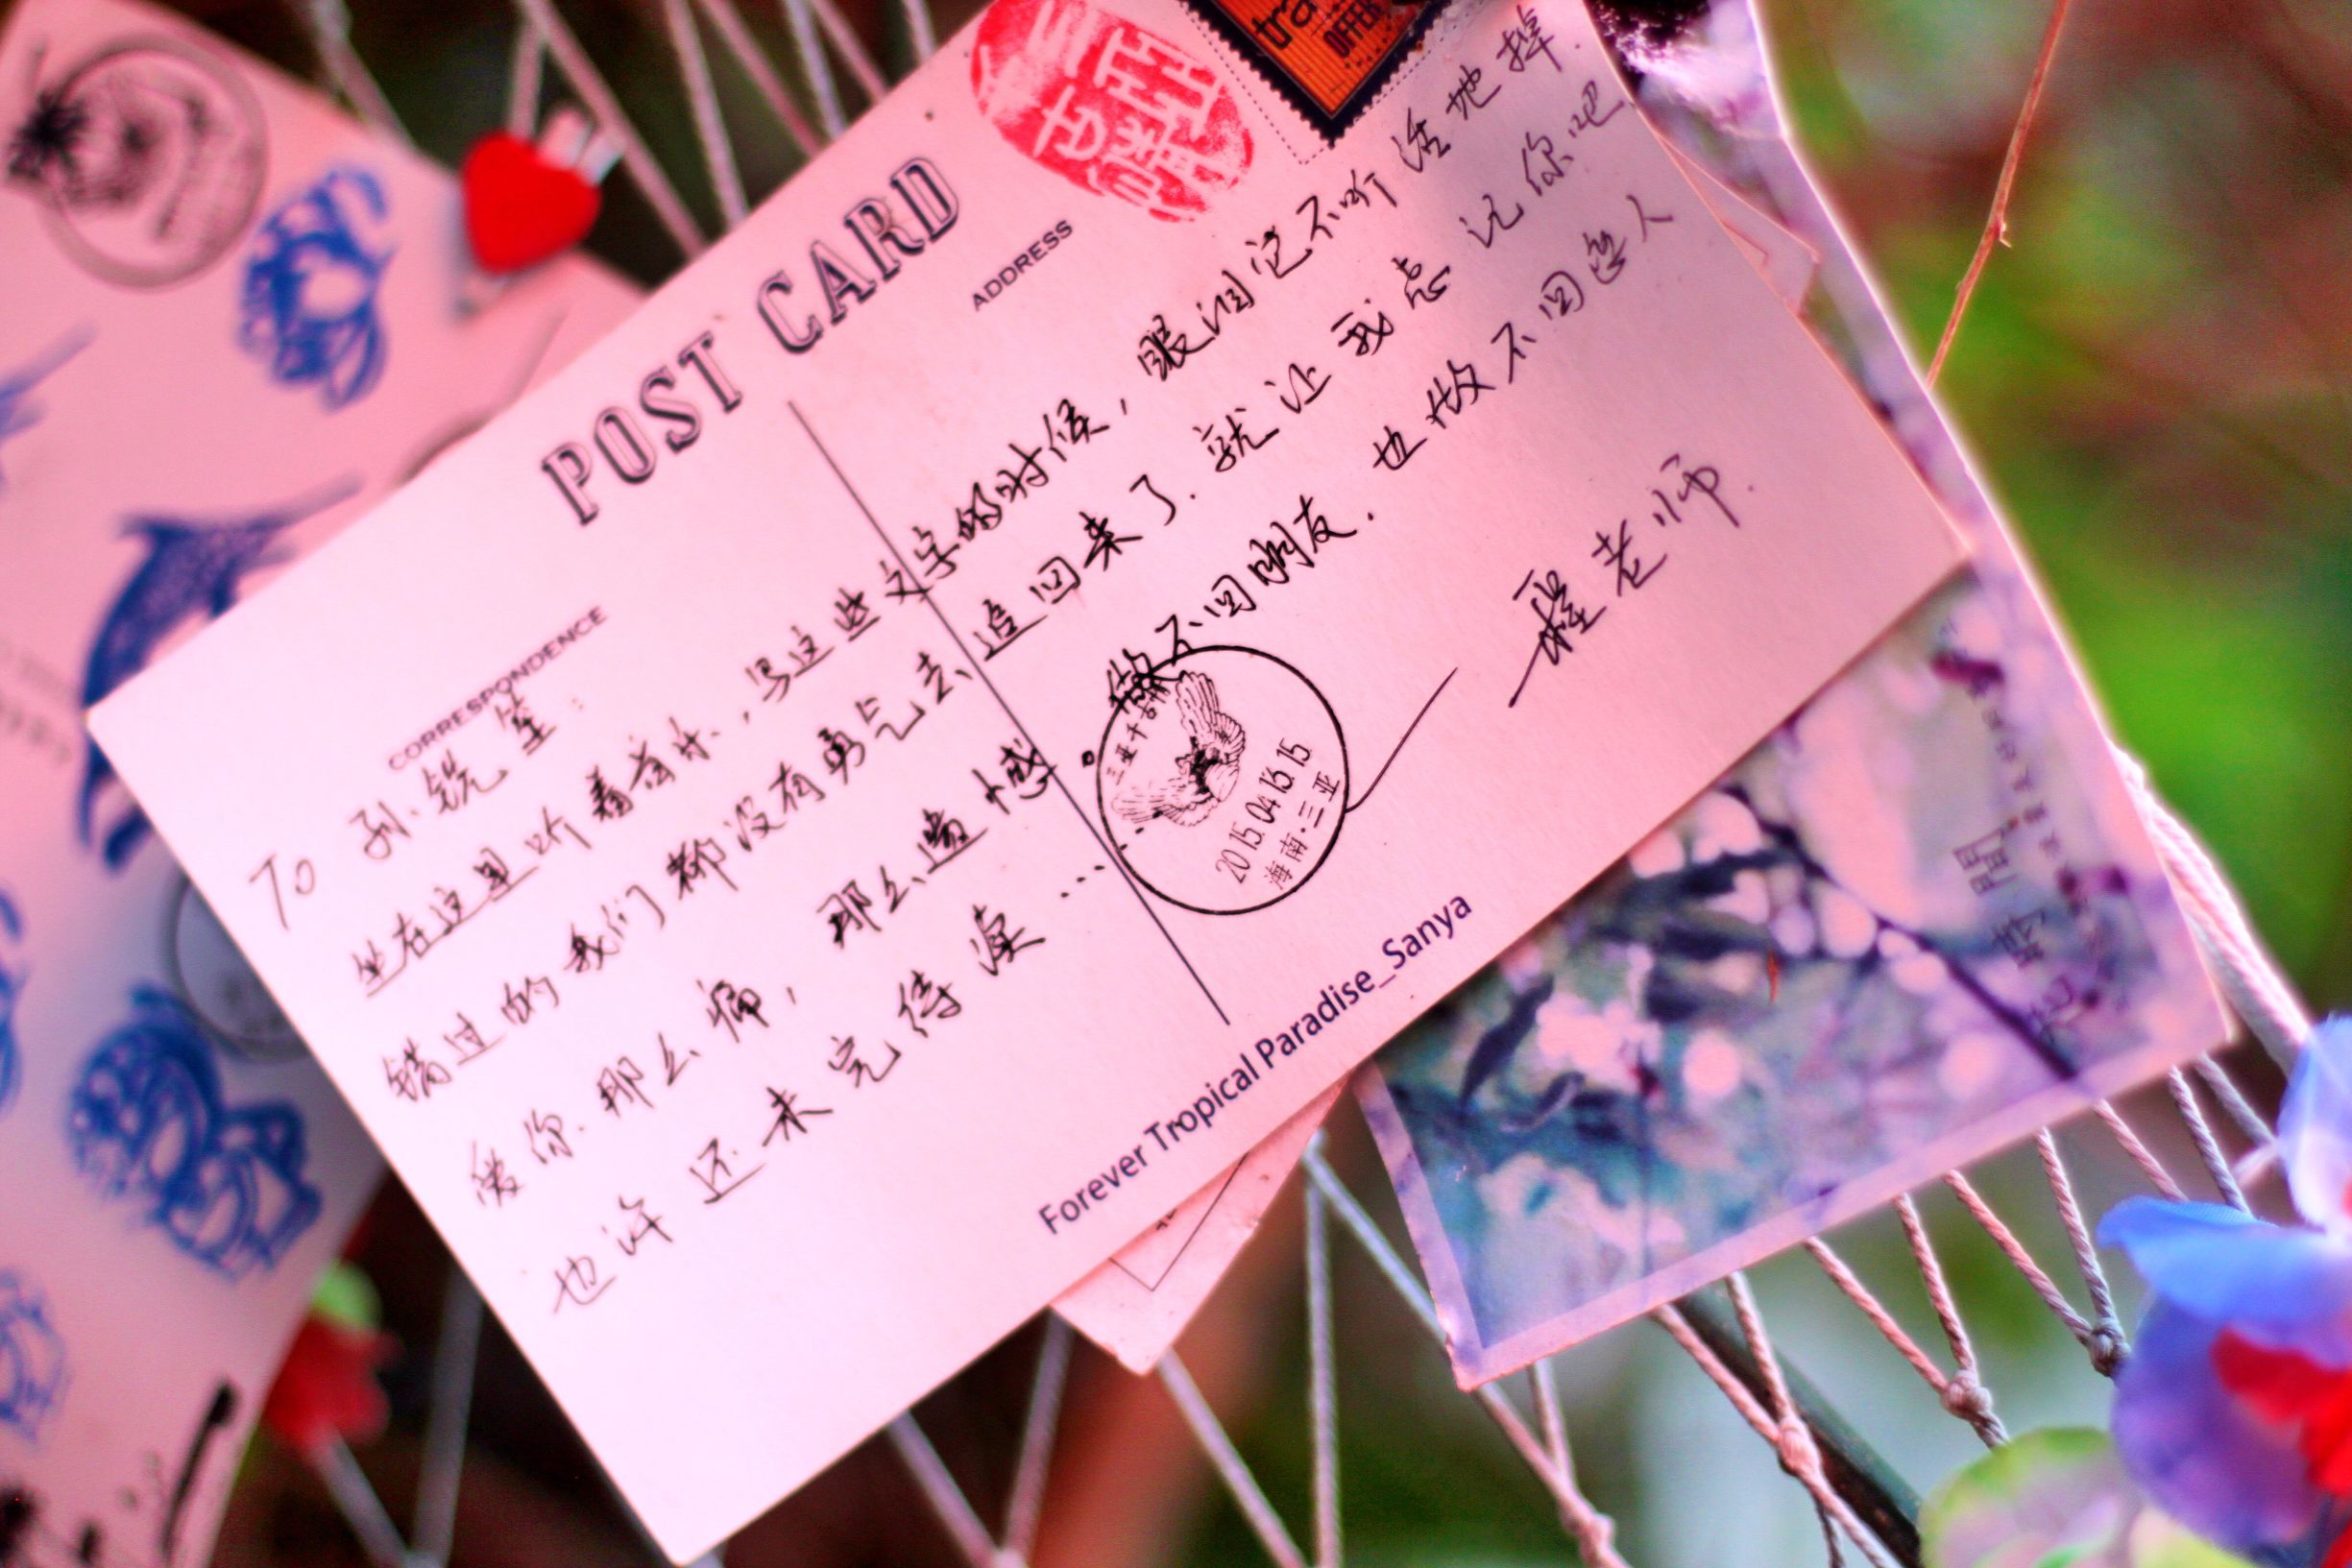 OFFER
POST CARD
ADDRESS
CORRESPONDENCE
To 孙锐笙:
坐在这里听着音乐,写这些文字的时候,眼泪它不听话地掉.
错过的我们都没有勇气去追回来了.就让我忘记你吧
爱你.那么痛,那么遗憾. 做不回朋友.也做不回恋人
也许还未完待续……
翟老师.
2015.04.15.15
海南·三亚
Forever Tropical Paradise_Sanya
時間